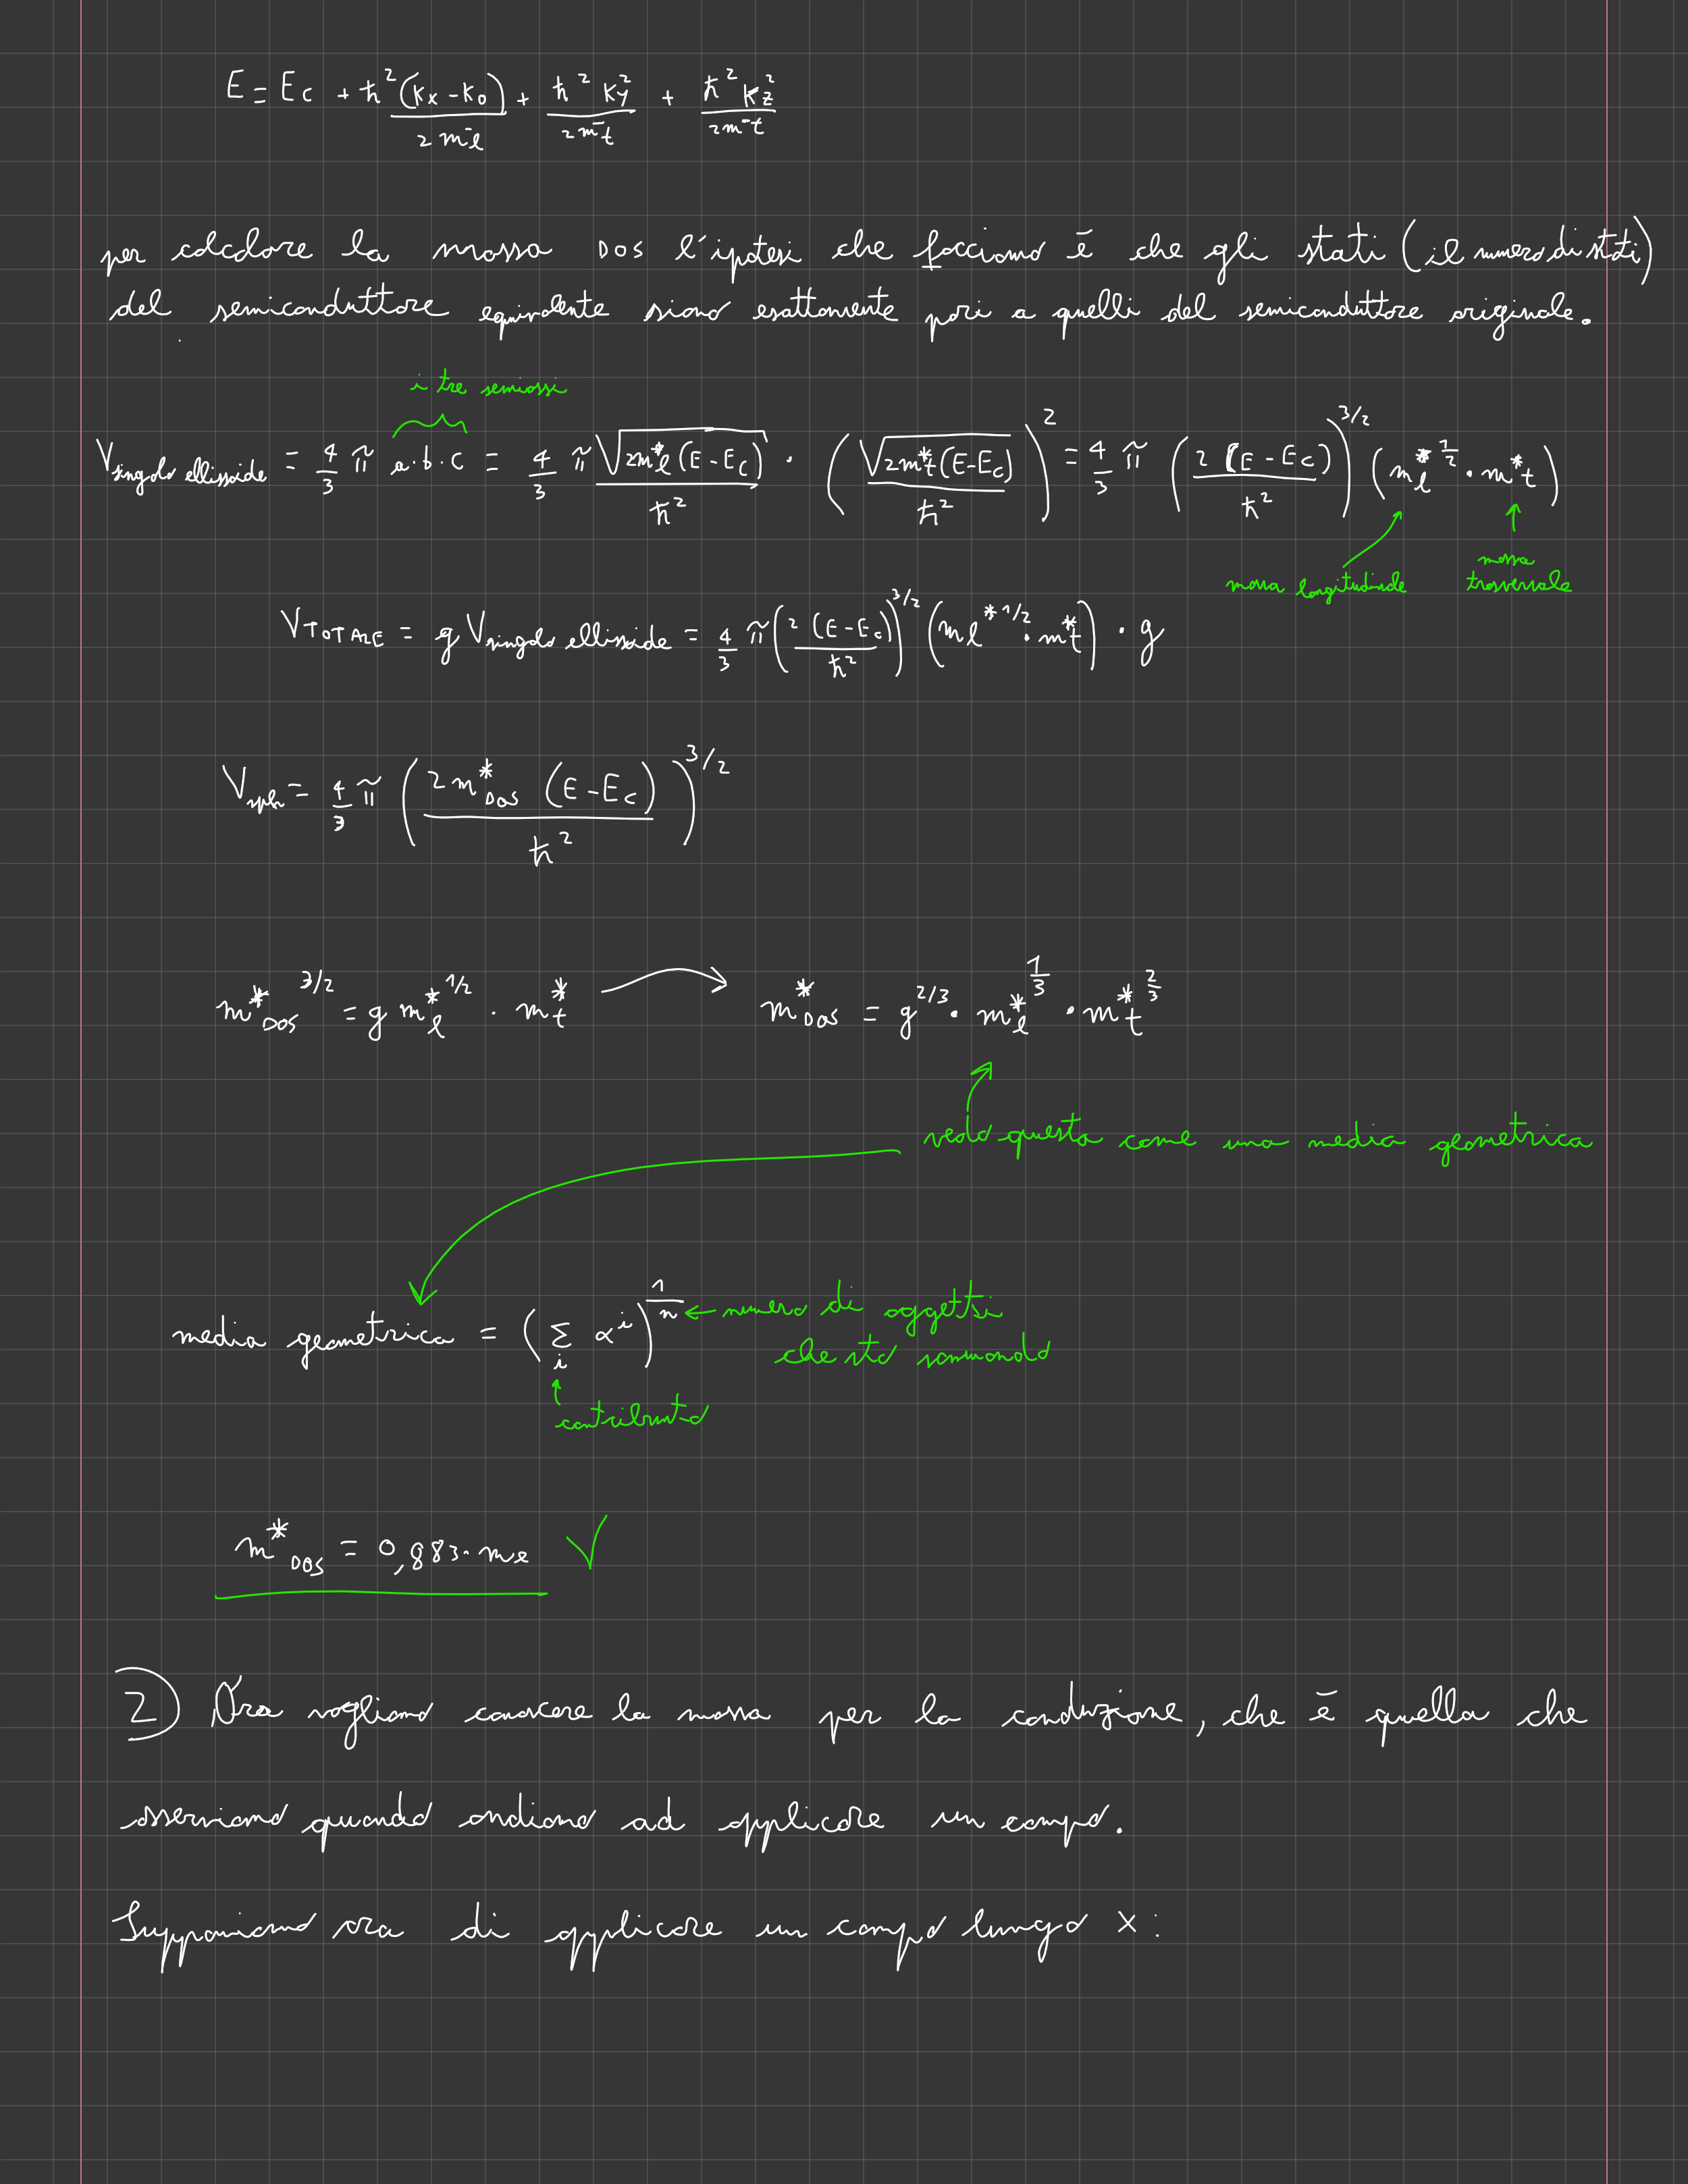 E = Ec + ħ²(Kx - K0)/2m⁻l + ħ²Ky²/2m⁻t + ħ²Kz²/2m⁻t
per calcolare la massa DOS l'ipotesi che facciamo è che gli stati (il numero di stati)
del semiconduttore equivalente siano esattamente pari a quelli del semiconduttore originale.
i tre semiassi
V singolo ellissoide = 4/3 π a·b·c = 4/3 π √(2m*l (E - Ec))/ħ² · (√(2m*t (E - Ec))/ħ²)² = 4/3 π (2 (E - Ec)/ħ²)^3/2 (m*l^1/2 · m*t)
massa longitudinale massa trasversale
V TOTALE = g V singolo ellissoide = 4/3 π (2 (E - Ec)/ħ²)^3/2 (ml*^1/2 · m*t) · g
Vsph = 4/3 π (2 m*DOS (E - Ec)/ħ²)^3/2
m*DOS^3/2 = g m*l^1/2 · m*t → m*DOS = g^2/3 · m*l^1/3 · m*t^2/3
vedo questa come una media geometrica
media geometrica = (Σi αⁱ)^1/n ← numero di oggetti
che sto sommando
contributo
m*DOS = 0,883·me ✓
2) Ora vogliamo conoscere la massa per la conduzione, che è quella che
osserviamo quando andiamo ad applicare un campo.
Supponiamo ora di applicare un campo lungo x: